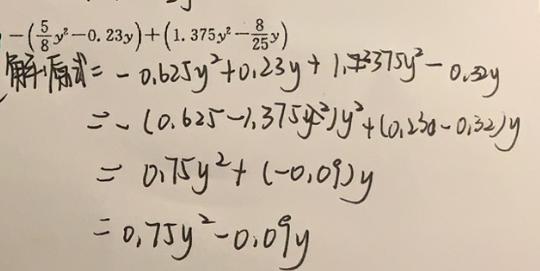 -(5/8y²-0.23y)+(1.375y²-8/25y)
解:原式=-0.625y²+0.23y+1.375y²-0.32y
=-(0.625-1.375)y²+(0.23-0.32)y
=0.75y²+(-0.09)y
=0.75y²-0.09y